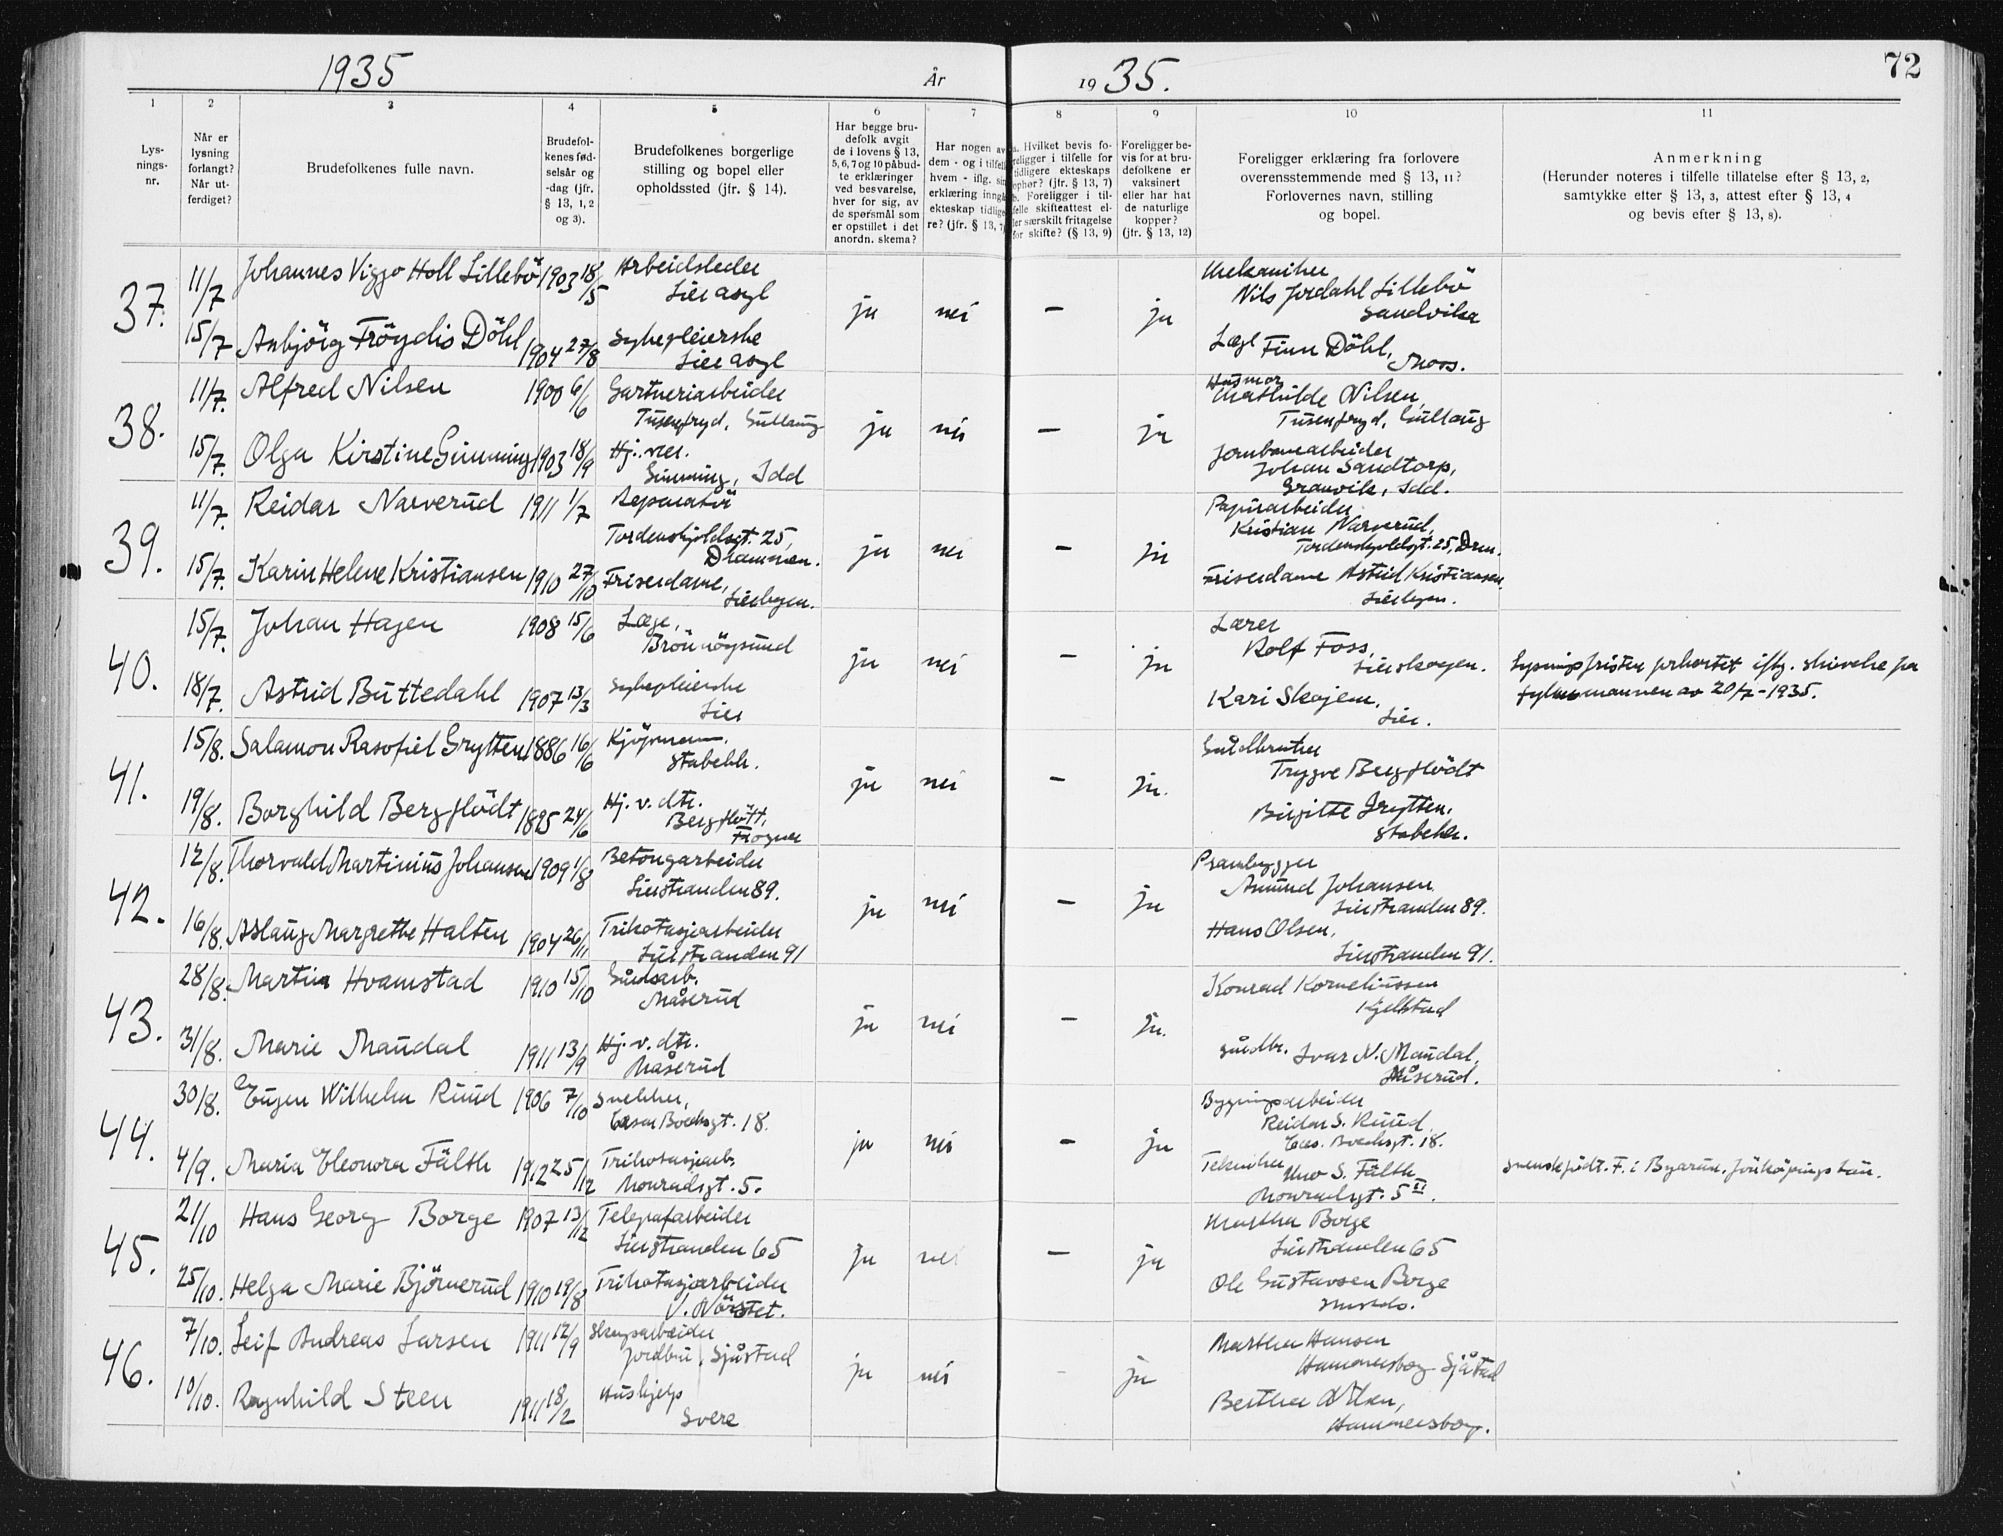 1935
År
19 35.
72
1
2
3
4
5
6
7
8
9
10
11
Lys-
nings-
nr.
Når er
lysning
forlangt?
Når ut-
ferdiget?
Brudefolkenes fulle navn.
Brudefol-
kenes fød-
selsår og
-dag (jfr.
§ 13, 1, 2
og 3).
Brudefolkenes borgerlige
stilling og bopel eller
opholdssted (jfr. § 14).
Har begge bru-
defolk avgit
de i lovens § 13,
5, 6, 7 og 10 påbud-
te erklæringer
ved besvarelse,
hver for sig, av
de spørsmål som
er opstillet i det
anordn. skema?
Har nogen av
dem - og i tilfelle
hvem - iflg. sin
erklæring inngå
ekteskap tidlige
re? (jfr. § 13, 7)
a. Hvilket bevis fo-
religger i tilfelle for
tidligere ekteskaps
ophør? (jfr. § 13, 7)
b. Foreligger i til-
felle skifteattest el-
ler særskilt fritagelse
for skifte? (§ 13, 9)
Foreligger be-
vis for at bru-
defolkene er
vaksinert
eller har hat
de naturlige
kopper?
(jfr. § 13, 12)
Foreligger erklæring fra forlovere
overensstemmende med § 13, 11?
Forlovernes navn, stilling
og bopel.
Anmerkning
(Herunder noteres i tilfelle tillatelse efter § 13, 2,
samtykke efter § 13, 3, attest efter § 13, 4
og bevis efter § 13, 8).
37.
11/7 Johannes Viggo Holl Lillebö 1903 18/5 Arbeidsleder
Lier asyl
ja nei — ja
Mekaniker
Nils Jordahl Lillebö
Sandvika
15/7 Anbjörg Fröydis Döhl 1904 27/8 Sykepleierske
Lier asyl
Læge Finn Döhl,
Moss.
38.
11/7. Alfred Nilsen 1900 6/6 Gartneriarbeider
Tusenfryd, Gullaug
ja nei — ja
Husmor
Mathilde Nilsen,
Tusenfryd, Gullaug
15/7. Olga Kirstine Gimming 1903 18/9 Hj. ver.
Gimming, Idd
Jernbanearbeider
Johan Sandtorp,
Granvik, Idd.
39.
11/7. Reidar Narverud 1911 1/7 Reparatör
Tordenskjoldsgt. 25,
Drammen.
ja nei — ja
Papirarbeider
Kristian Narverud,
Tordenskjoldsgt. 25, Drm.
15/7. Karin Helene Kristiansen 1910 27/10 Friserdame,
Lierbyen.
Friserdame Astrid Kristiansen
Lierbyen.
40.
15/7. Johan Hagen 1908 15/6 Læge,
Brönnöysund
ja nei — ja
Lærer
Rolf Foss,
Lierskogen.
Lysningsfristen forkortet iflg. skrivelse fra
fylkesmannen av 20/7-1935.
18/7. Astrid Buttedahl 1907 13/3 Sykepleierske
Lier
Kari Skojem,
Lier.
41.
15/8. Salamon Rasofiel Grytten 1886 16/6 Kjöpmann.
Stabekk.
ja nei — ja.
Gårdbruker
Trygve Bergflödt
19/8. Borghild Bergflödt 1895 24/6 Hj. v. dtr.
Bergflött,
Frogner
Birgitte Grytten.
Stabekk.
42.
12/8. Thorvald Martinius Johansen 1909 1/8 Betongarbeider
Lierstranden 89.
ja nei — ja
Prambygger
Amund Johansen
Lierstranden 89.
16/8. Aslaug Margrethe Halten 1904 26/11 Trikotasjearbeider
Lierstranden 91
Hans Olsen,
Lierstranden 91.
43.
28/8. Martin Hvamstad 1910 15/10 Gårdsarb.
Måserud
ja nei — ja.
Konrad Korneliussen
Kjellstad
31/8. Marie Maudal 1911 13/9 Hj. v. dtr.
Måserud
gårdbr. Ivar N. Maudal,
Måserud.
44.
30/8. Eugen Wilhelm Ruud 1906 7/10 Snekker,
Cesar Boecksgt. 18.
ja nei — ja
Bygningsarbeider
Reidar S. Ruud,
Ces. Boecksgt. 18.
4/9. Maria Eleonora Fälth 1912 25/12 Trikotasjearb.
Monradsgt. 5.
Tekniker
Uno S. Fälth
Monradsgt. 5 II.
svenskfödt. F. i Byarum, Jönköpings län.
45.
21/10 Hans Georg Borge 1907 13/12 Telegrafarbeider
Lierstranden 65
ja nei — ja
Martha Borge
Lierstranden 65
25/10. Helga Marie Bjørnerud 1910 19/8 Trikotasjearbeider
V. Nörstet.
Ole Gustavsen Borge
46.
7/10. Leif Andreas Larsen 1911 12/9 Skogsarbeider
Jordbru, Sjåstad
ja nei - ja
Martha Hansen
Hammersborg Sjåstad
10/10. Ragnhild Steen 1911 18/2 Hushjelp
Svere
Berthe Olsen,
Hammersborg.